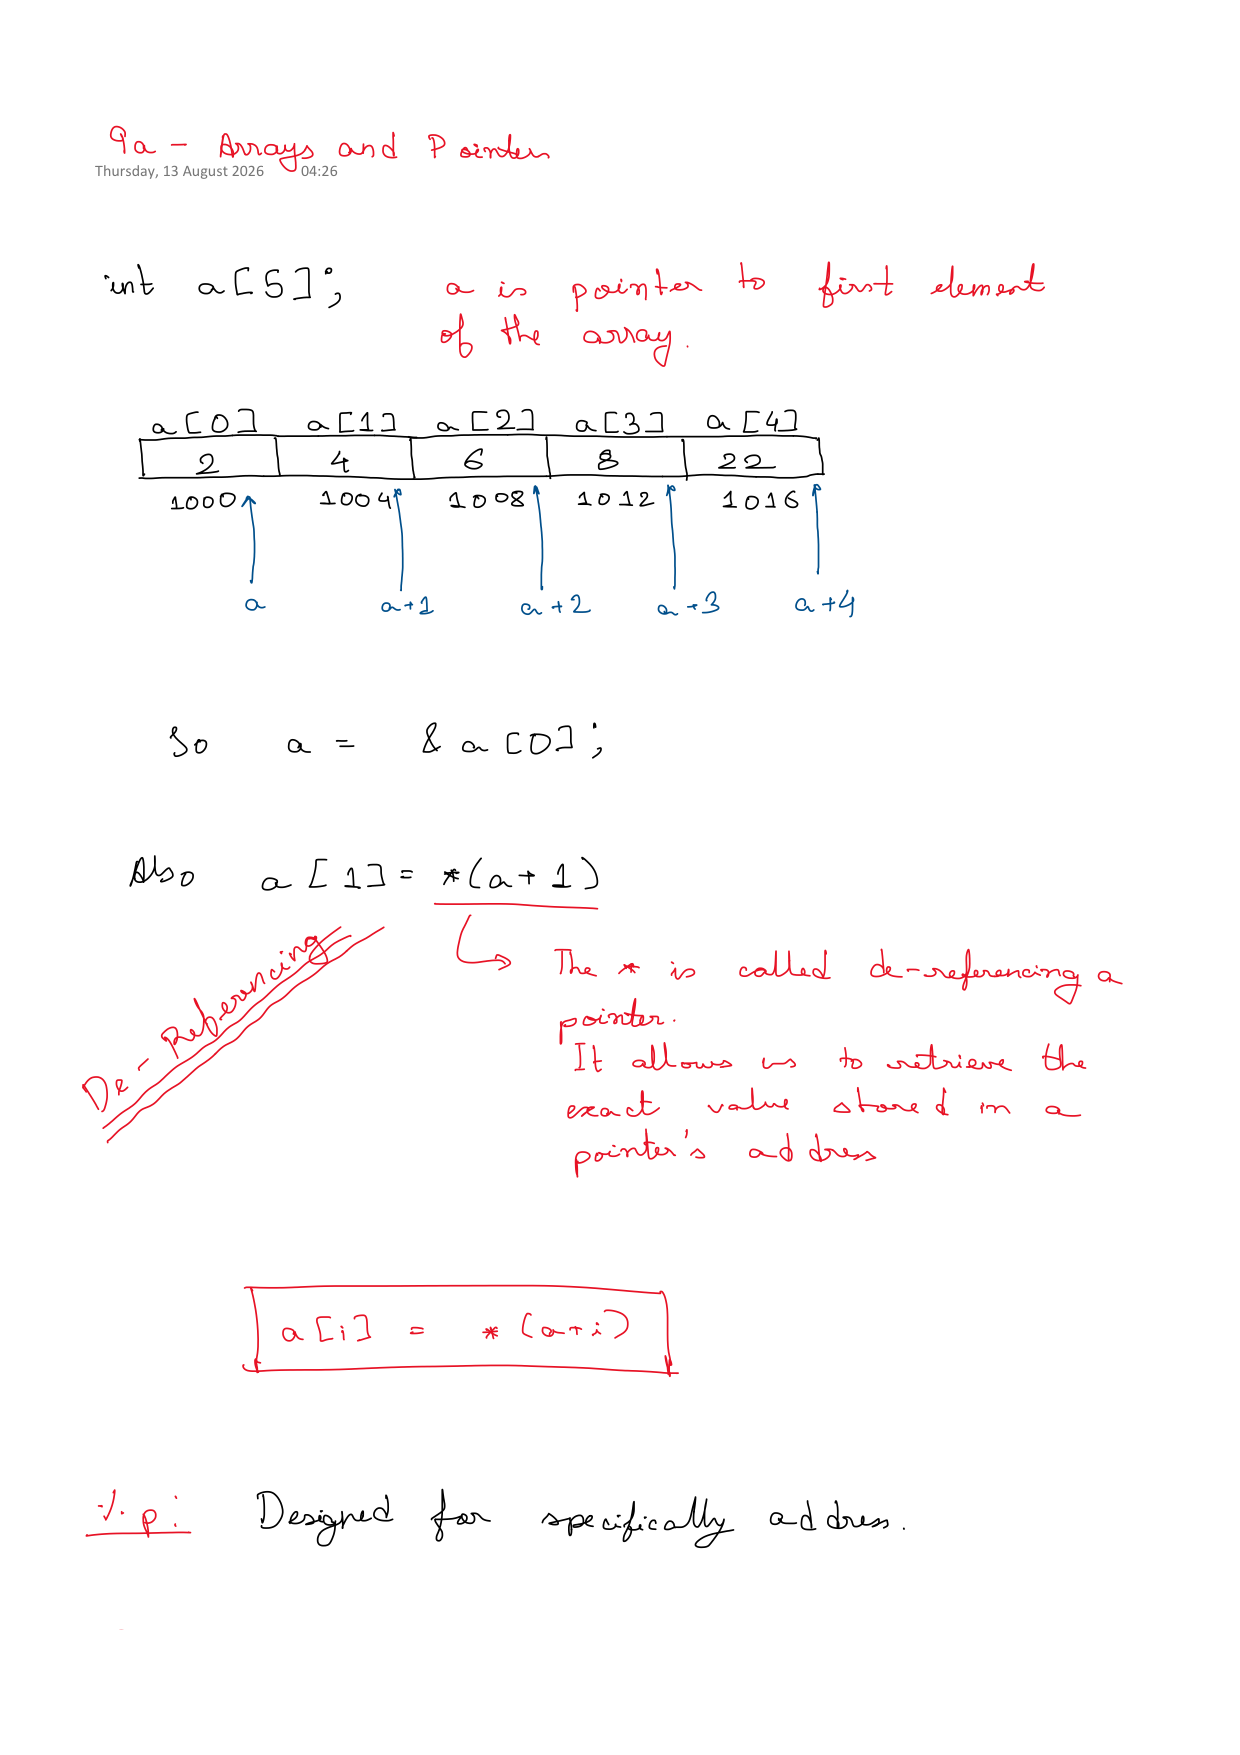 9a - Arrays and Pointers
Thursday, 13 August 2026 04:26
int a[5]; a is pointer to first element
of the array.
a[0] a[1] a[2] a[3] a[4]
2 4 6 8 22
1000 1004 1008 1012 1016
a a+1 a+2 a+3 a+4
So a = &a[0];
Also a[1] = *(a+1)
De-Referencing
The * is called de-referencing a
pointer.
It allows us to retrieve the
exact value stored in a
pointer's address
a[i] = *(a+i)
%p: Designed for specifically address.